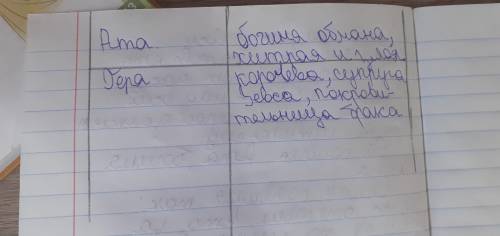 Ата. богиня обмана,
хитрая и злая
Гера королева, супруга
Зевса, покрови-
тельница брака